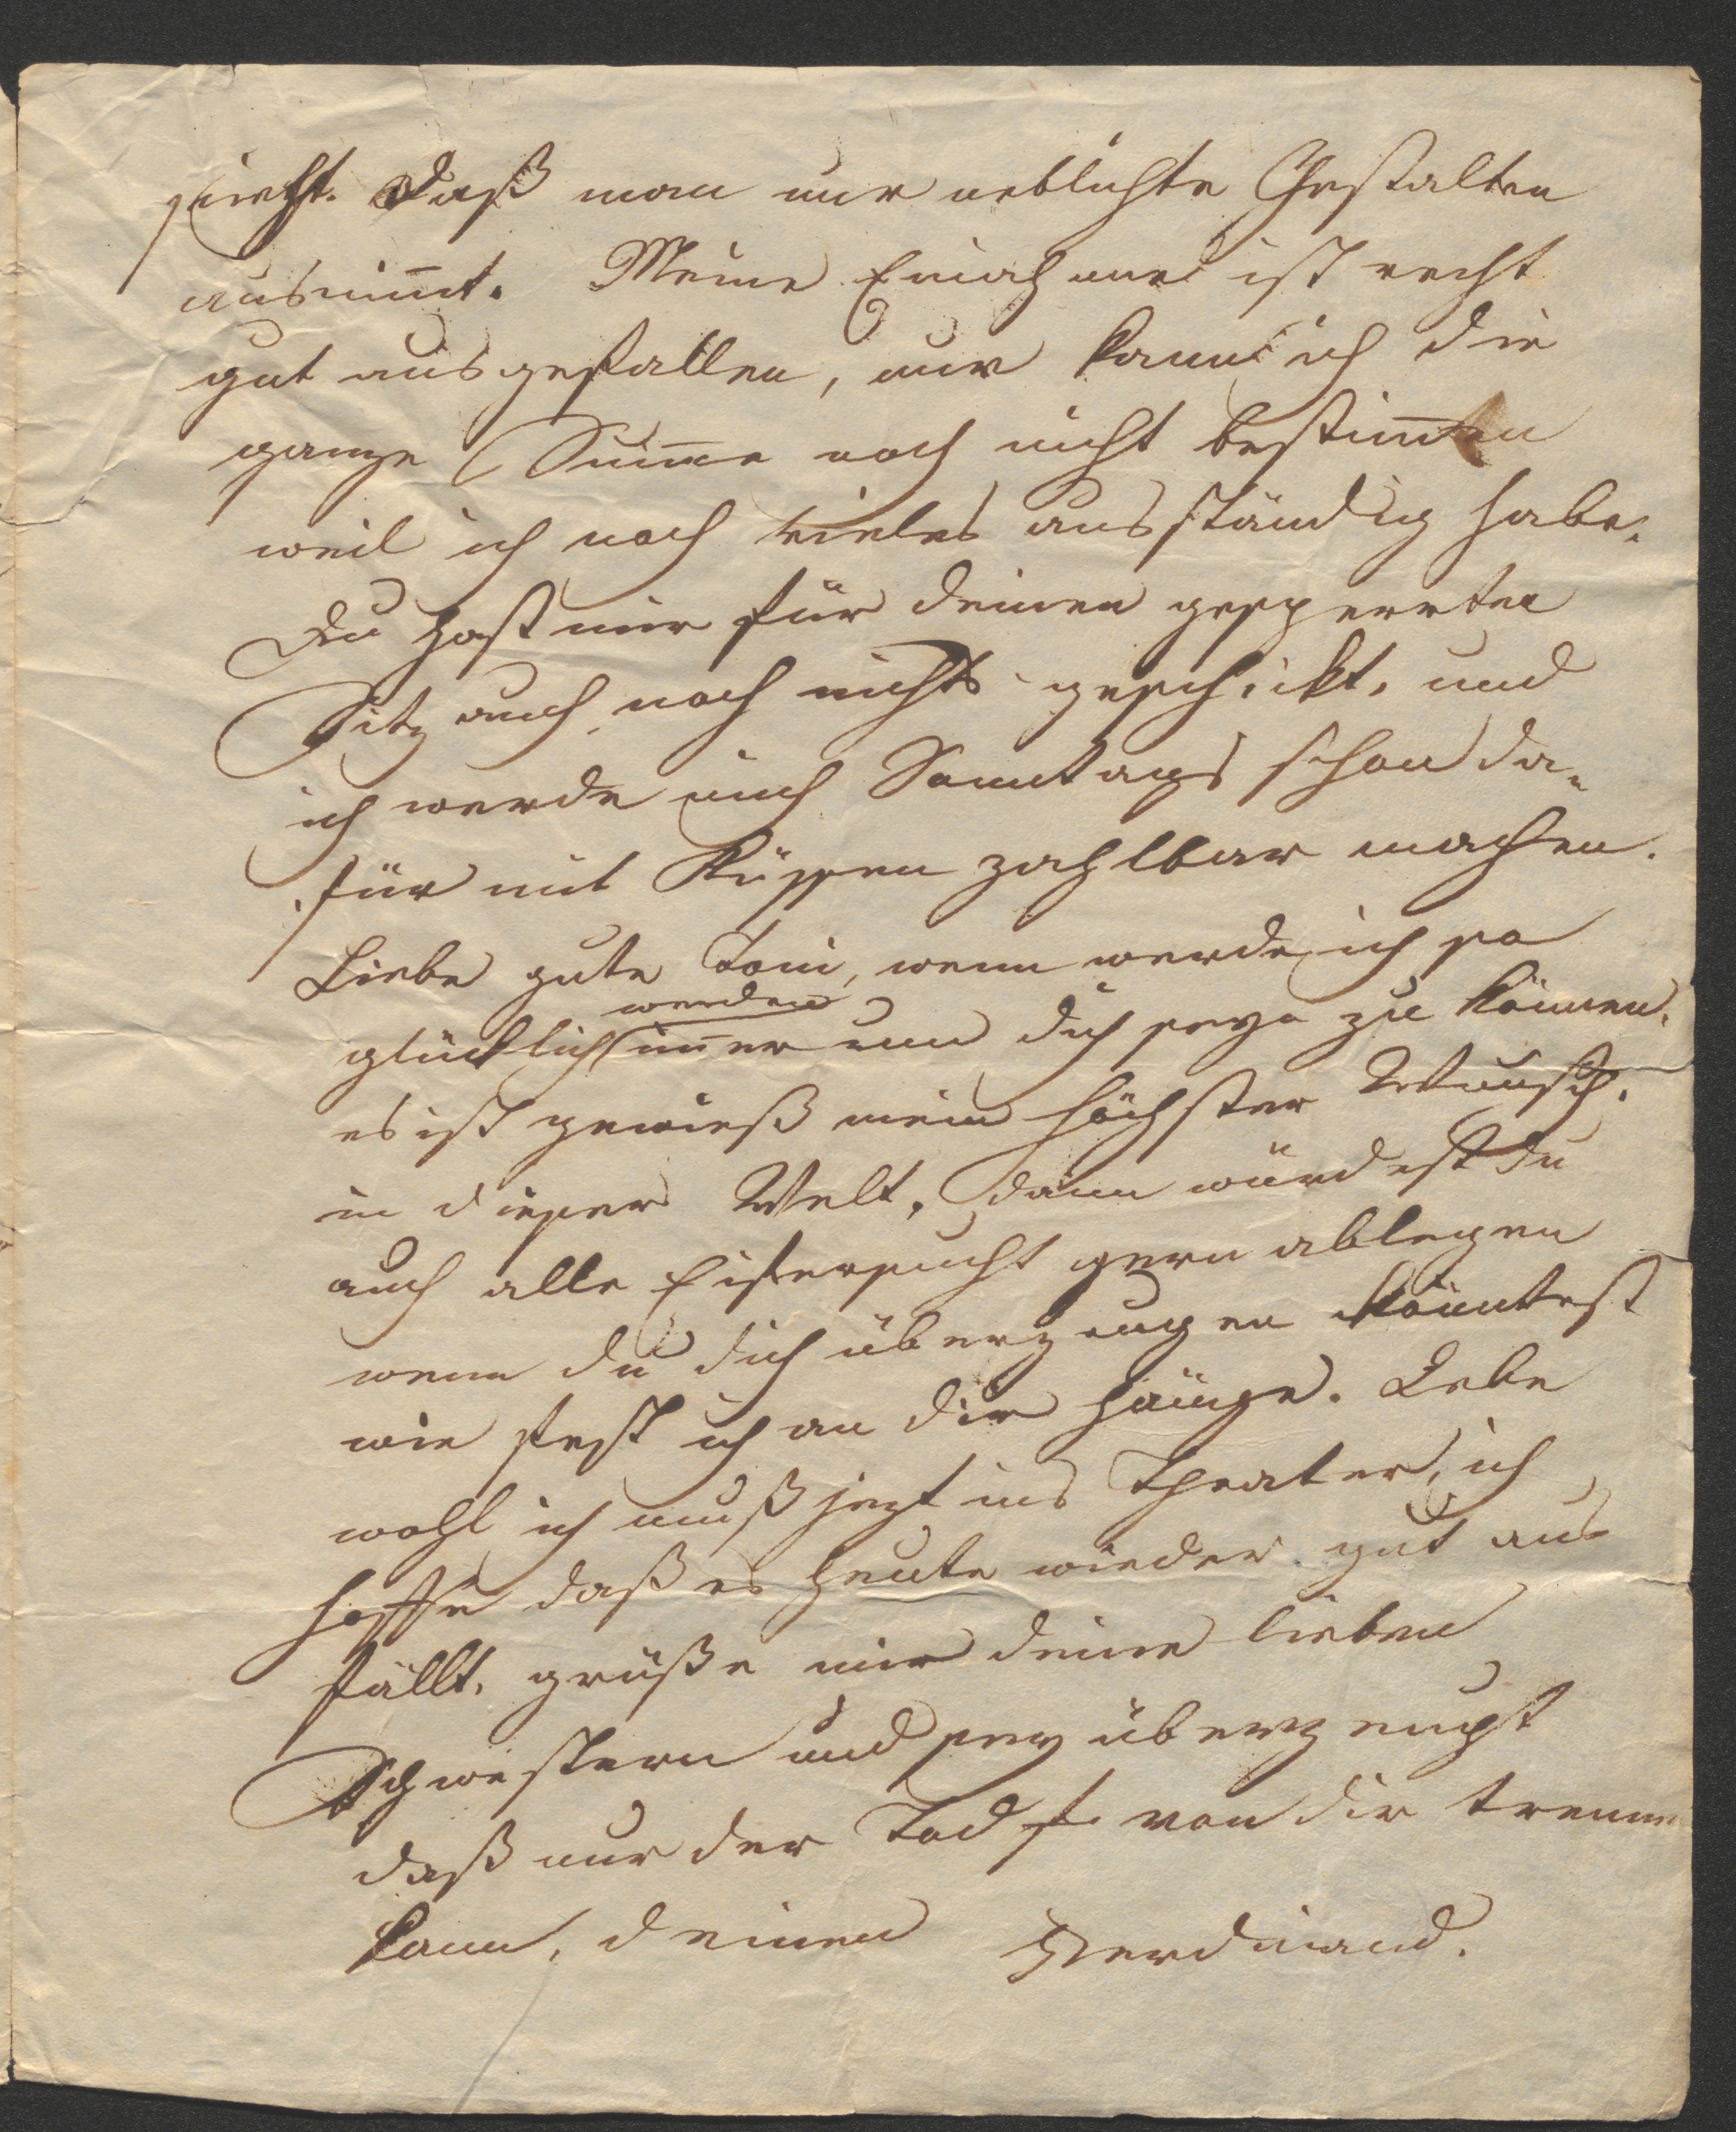 sieht. daß man nur neblichte Gestalten
ausnim̅t. Meine Einahme ist recht
gut ausgefallen, nur kann ich die
ganze Sum̅e noch nicht bestim̅en
weil ich noch vieles ausständig habe.
Du hast mir für deinen gesperrten
Sitz auch noch nichts geschickt, und
ich werde mich Sonntags schon da„
für mit Küssen zahlbar machen.
Liebe gute Toni, wenn werde ich so
glücklich werden im̅er um dich seyn zu können.
es ist gewieß mein höchster Wunsch.
in dieser Welt. dann würdest du
auch alle Eifersucht gern ablegen
wenn du dich überzeugen könntest
wie fest ich an dir hänge. Lebe
wohl ich muß jezt ins Theater, ich
hoffe daß es heute wieder gut aus
fällt. grüße mir deine lieben
Schwestern und sey überzeugt
daß nur der Tod von dir trennen
kann, deinen Ferdinand.